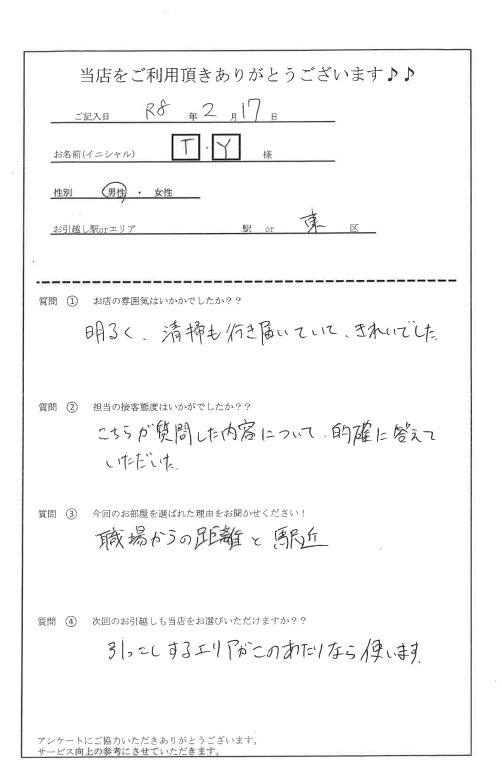 当店をご利用頂きありがとうございます♪♪
ご記入日 R8 年 2 月 17 日
お名前(イニシャル) T・Y 様
性別 男性 ・ 女性
お引越し駅orエリア 駅 or 東 区
質問 ① お店の雰囲気はいかかでしたか??
明るく、清掃も行き届いていて、きれいでした。
質問 ② 担当の接客態度はいかがでしたか??
こちらが質問した内容について、的確に答えて
いただいた。
質問 ③ 今回のお部屋を選ばれた理由をお聞かせください!
職場からの距離と駅近
質問 ④ 次回のお引越しも当店をお選びいただけますか??
引っこしするエリアがこのあたりなら使います。
アンケートにご協力いただきありがとうございます。
サービス向上の参考にさせていただきます。